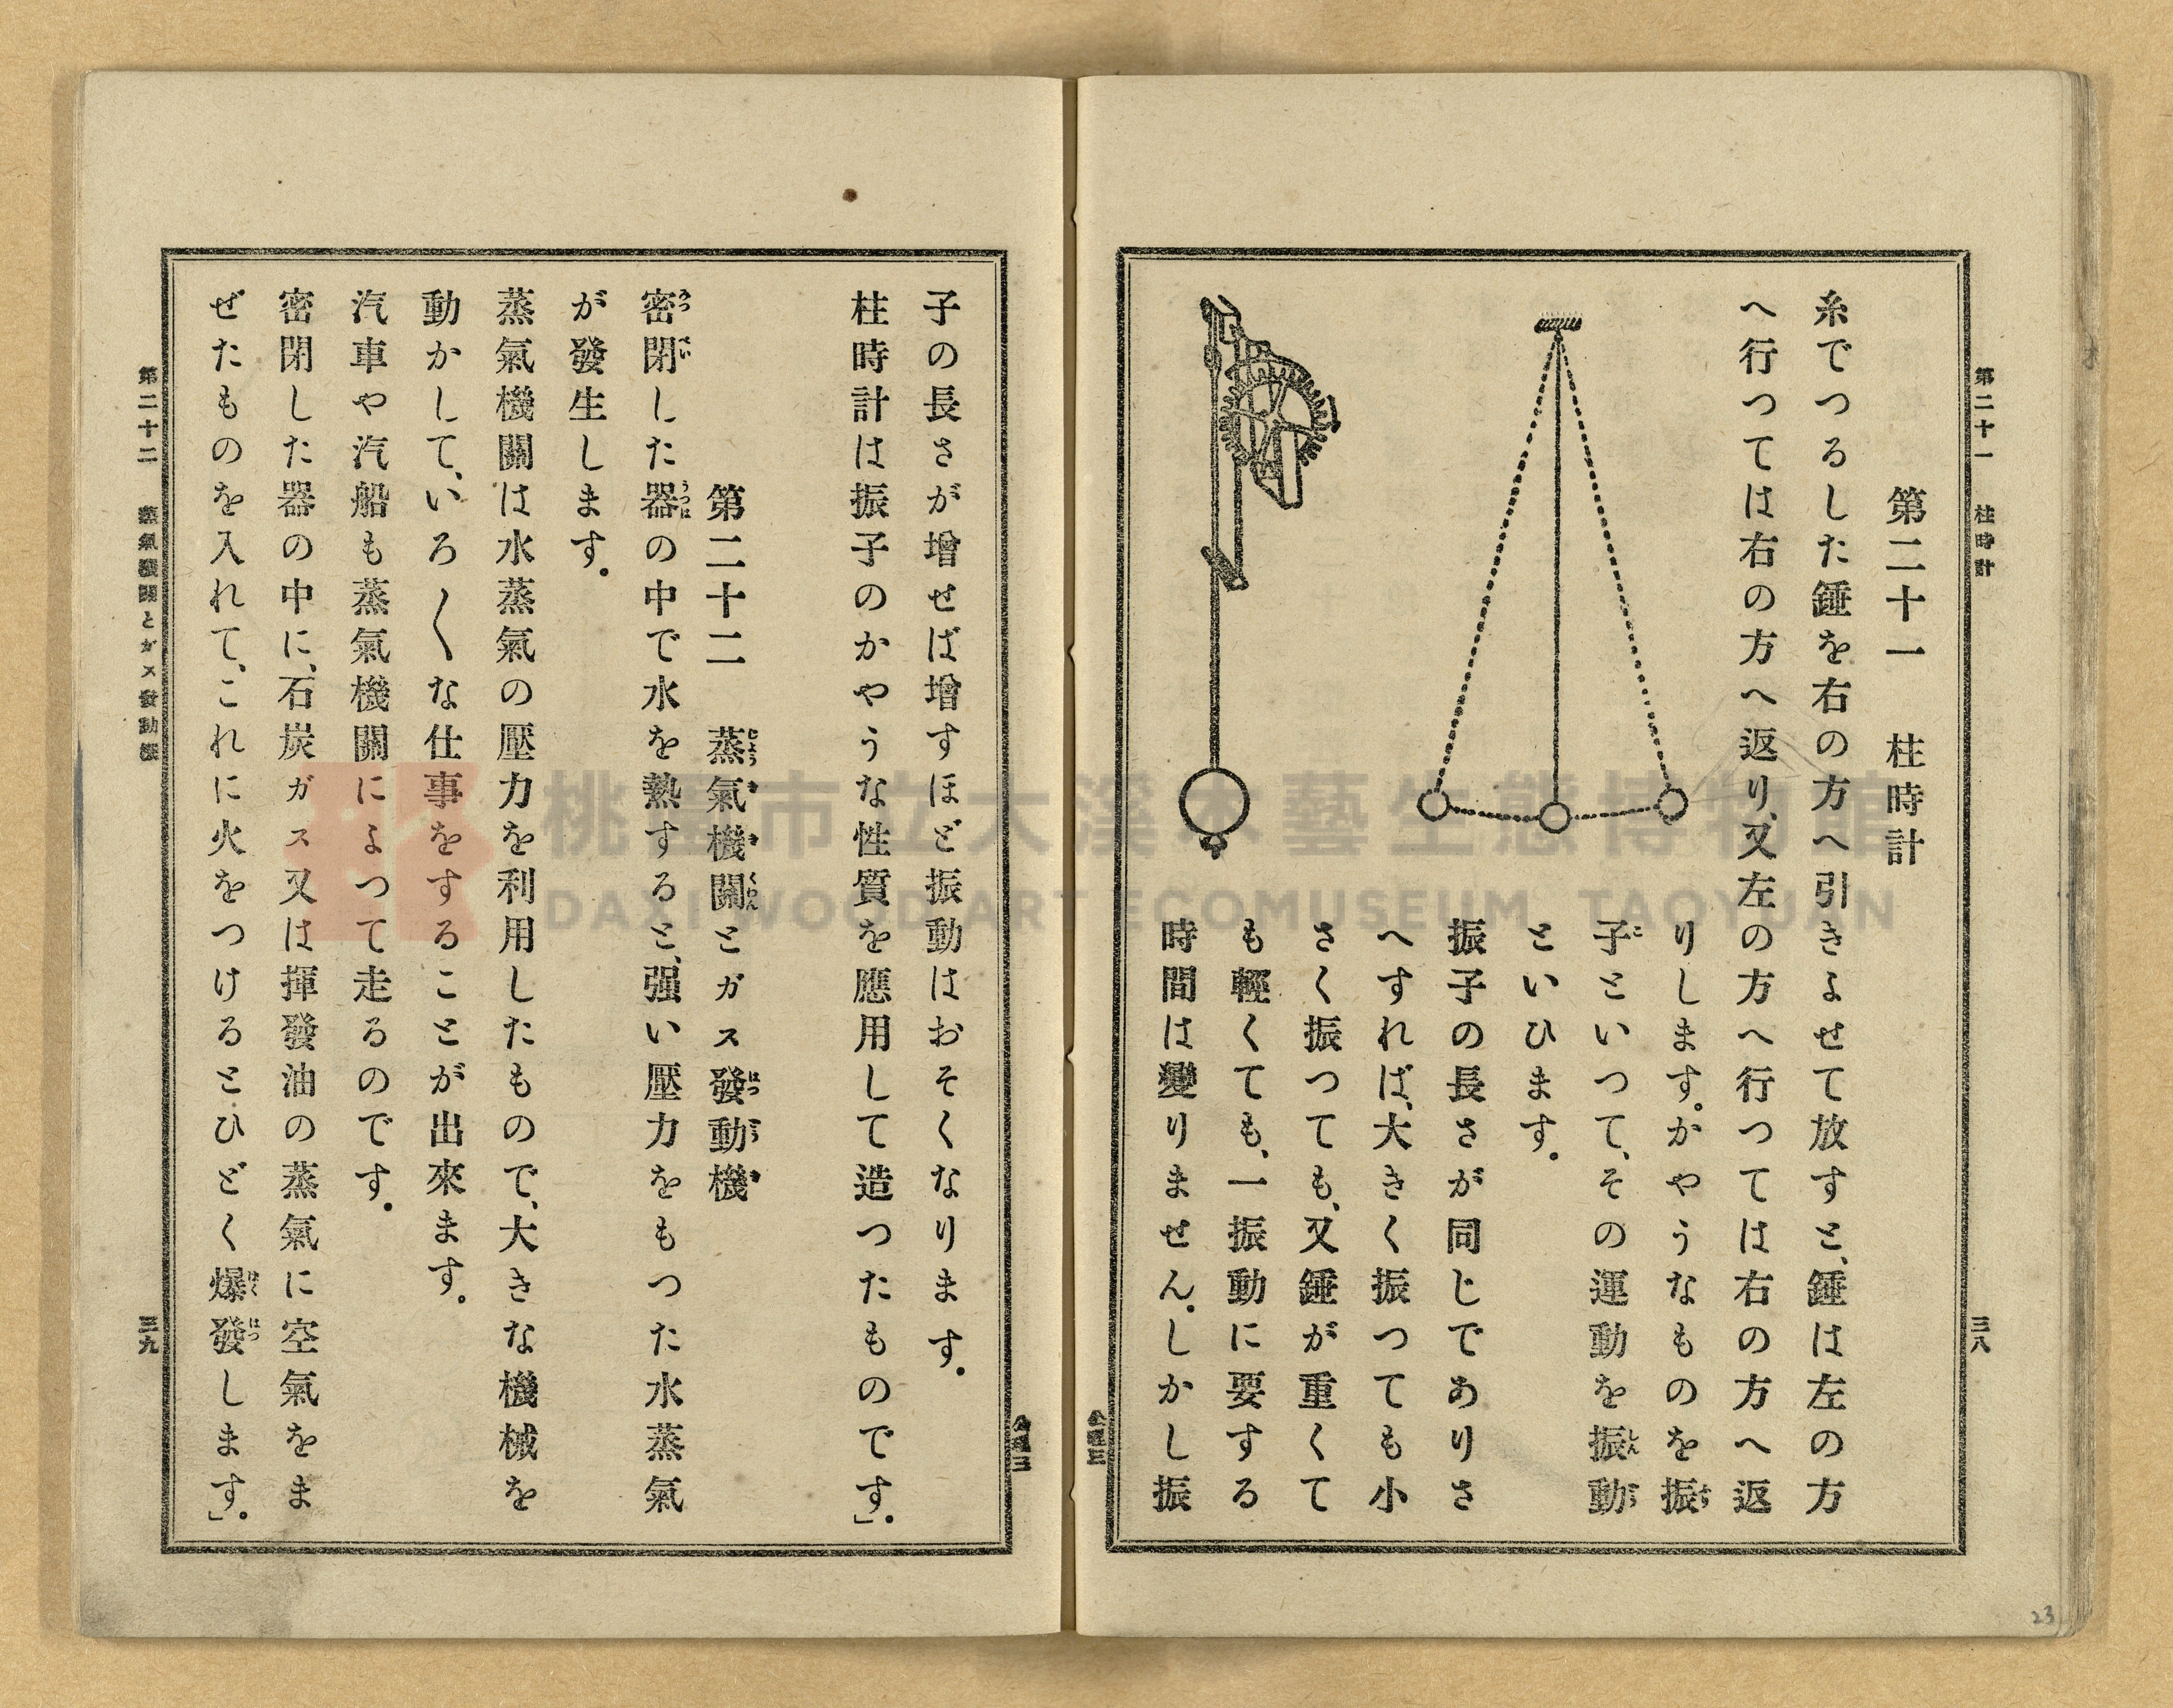 第二十一 柱時計
三八
第二十一 柱時計
糸でつるした錘を右の方へ引きよせて放すと、錘は左の方
へ行つては右の方へ返り、又左の方へ行つては右の方へ返
りします。かやうなものを振
子といつて、その運動を振動
といひます。
振子の長さが同じでありさ
へすれば、大きく振つても小
さく振つても、又錘が重くて
も輕くても、一振動に要する
時間は變りません。しかし振
子の長さが增せば增すほど振動はおそくなります。
柱時計は振子のかやうな性質を應用して造つたものです。」
第二十二 蒸氣機關とガス發動機
密閉した器の中で水を熱すると、强い壓力をもつた水蒸氣
が發生します。
蒸氣機關は水蒸氣の壓力を利用したもので、大きな機械を
動かして、いろ〱な仕事をすることが出來ます。
汽車や汽船も蒸氣機關によつて走るのです。
密閉した器の中に、石炭ガス又は揮發油の蒸氣に空氣をま
ぜたものを入れて、これに火をつけるとひどく爆發します。」
第二十二 蒸氣機關とガス發動機
三九
桃園市立大溪木藝生態博物館
DAXI WOOD ART ECOMUSEUM, TAOYUAN
23